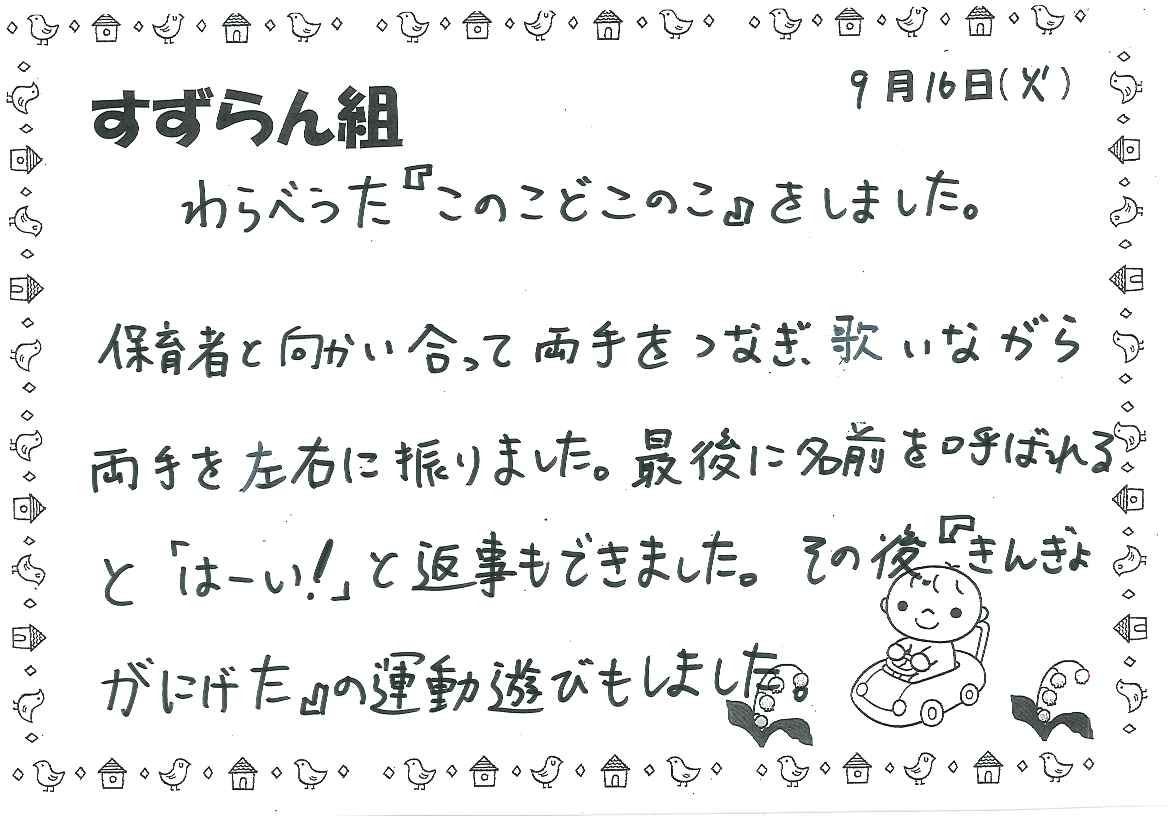 9月16日(火)
すずらん組
わらべうた『このこどこのこ』をしました。
保育者と向かい合って両手をつなぎ、歌いながら
両手を左右に振りました。最後に名前を呼ばれる
と「はーい!」と返事もできました。その後『きんぎょ
がにげた』の運動遊びもしました。